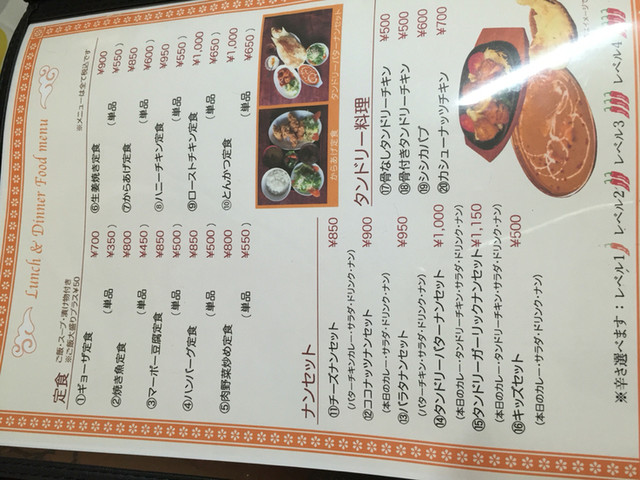 Lunch & Dinner Food menu
※メニューは全て税込です
定食 ご飯・スープ・漬け物付き
※ご飯大盛りプラス¥50
①ギョーザ定食 ¥700
(単品 ¥350)
②焼き魚定食 ¥800
(単品 ¥450)
③マーボー豆腐定食 ¥850
(単品 ¥500)
④ハンバーグ定食 ¥850
(単品 ¥500)
⑤肉野菜炒め定食 ¥800
(単品 ¥550)
⑥生姜焼き定食 ¥900
(単品 ¥550)
⑦からあげ定食 ¥850
(単品 ¥600)
⑧ハニーチキン定食 ¥950
(単品 ¥550)
⑨ローストチキン定食 ¥1,000
(単品 ¥650)
⑩とんかつ定食 ¥1,000
(単品 ¥650)
からあげ定食
タンドリーバターナンセット
ナンセット
⑪チーズナンセット ¥850
(バターチキンカレー・サラダ・ドリンク・ナン)
⑫ココナッツナンセット ¥900
(本日のカレー・サラダ・ドリンク・ナン)
⑬パラタナンセット ¥950
(バターチキン・サラダ・ドリンク・ナン)
⑭タンドリーバターナンセット ¥1,000
(本日のカレー・タンドリーチキン・サラダ・ドリンク・ナン)
⑮タンドリーガーリックナンセット ¥1,150
(本日のカレー・タンドリーチキン・サラダ・ドリンク・ナン)
⑯キッズセット ¥500
(本日のカレー・サラダ・ドリンク・ナン)
タンドリー料理
⑰骨なしタンドリーチキン ¥500
⑱骨付きタンドリーチキン ¥500
⑲シシカバブ ¥600
⑳カシューナッツチキン ¥700
※辛さ選べます：レベル1 レベル2 レベル3 レベル4